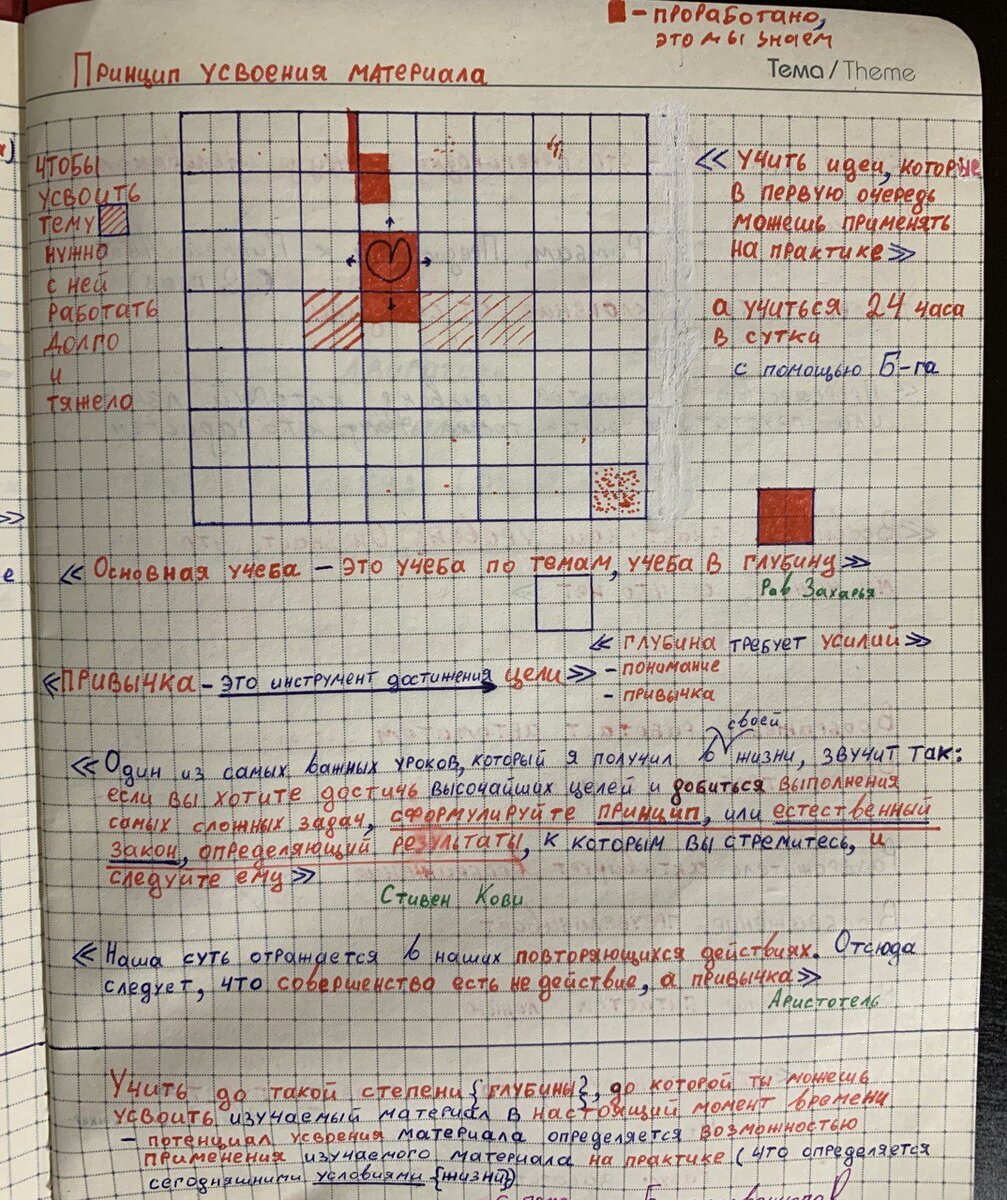 - проработано,
это мы знаем
Принцип усвоения материала
Тема / Theme
чтобы
усвоить
тему
нужно
с ней
работать
долго
и
тяжело
« учить идеи, которые
в первую очередь
можешь применять
на практике »
а учиться 24 часа
в сутки
с помощью Б-га
« Основная учеба – это учеба по темам, учеба в глубину »
Рав Захарья
« глубина требует усилий »
- понимание
- привычка
« Привычка – это инструмент достижения цели »
своей
« Один из самых важных уроков, который я получил в жизни, звучит так:
если вы хотите достичь высочайших целей и добиться выполнения
самых сложных задач, сформулируйте принцип, или естественный
закон, определяющий результаты, к которым вы стремитесь, и
следуйте ему »
Стивен Кови
« Наша суть отражается в наших повторяющихся действиях. Отсюда
следует, что совершенство есть не действие, а привычка »
Аристотель
Учить до такой степени {глубины}, до которой ты можешь
усвоить изучаемый материал в настоящий момент времени
- потенциал усвоения материала определяется возможностью
применения изучаемого материала на практике (что определяется
сегодняшними условиями {жизни})